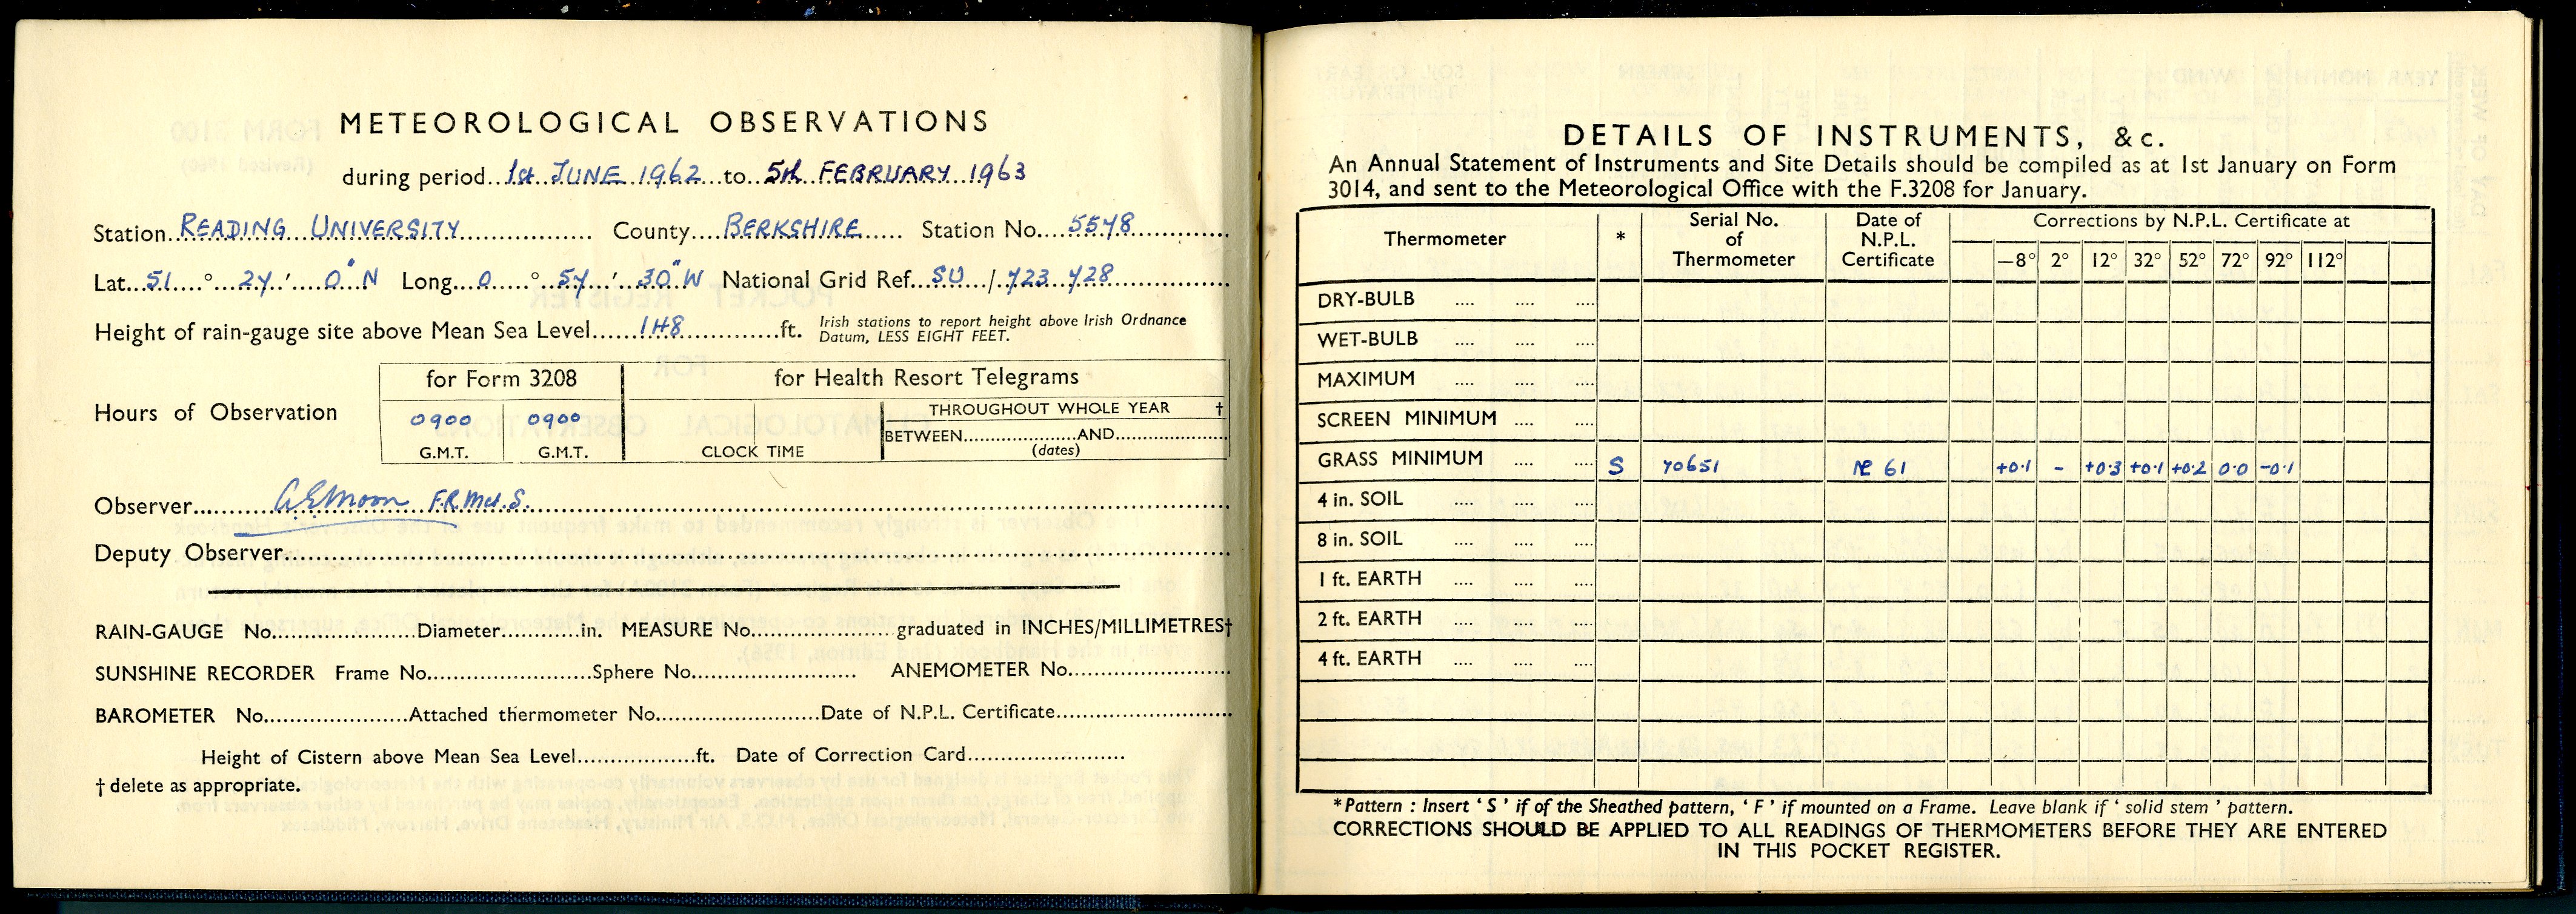 METEOROLOGICAL OBSERVATIONS
during period 1st JUNE 1962 to 5th FEBRUARY 1963
Station READING UNIVERSITY County BERKSHIRE Station No. 5578
Lat. 51 ° 27 ' 0" N Long. 0 ° 57 ' 30" W National Grid Ref. SU / 723 728
Height of rain-gauge site above Mean Sea Level 148 ft. Irish stations to report height above Irish Ordnance
Datum, LESS EIGHT FEET.
for Form 3208 for Health Resort Telegrams
Hours of Observation 0900 0900 THROUGHOUT WHOLE YEAR †
BETWEEN AND
G.M.T. G.M.T. CLOCK TIME (dates)
Observer A.E. Moon F.R.Met.S.
Deputy Observer
RAIN-GAUGE No. Diameter in. MEASURE No. graduated in INCHES/MILLIMETRES†
SUNSHINE RECORDER Frame No. Sphere No. ANEMOMETER No.
BAROMETER No. Attached thermometer No. Date of N.P.L. Certificate
Height of Cistern above Mean Sea Level ft. Date of Correction Card
† delete as appropriate.
DETAILS OF INSTRUMENTS, &c.
An Annual Statement of Instruments and Site Details should be compiled as at 1st January on Form
3014, and sent to the Meteorological Office with the F.3208 for January.
Thermometer * Serial No. of Thermometer Date of N.P.L. Certificate Corrections by N.P.L. Certificate at
—8° 2° 12° 32° 52° 72° 92° 112°
DRY-BULB
WET-BULB
MAXIMUM
SCREEN MINIMUM
GRASS MINIMUM S 70651 61 +0·1 - +0·3 +0·1 +0·2 0·0 -0·1
4 in. SOIL
8 in. SOIL
1 ft. EARTH
2 ft. EARTH
4 ft. EARTH
*Pattern : Insert ' S ' if of the Sheathed pattern, ' F ' if mounted on a Frame. Leave blank if ' solid stem ' pattern.
CORRECTIONS SHOULD BE APPLIED TO ALL READINGS OF THERMOMETERS BEFORE THEY ARE ENTERED
IN THIS POCKET REGISTER.